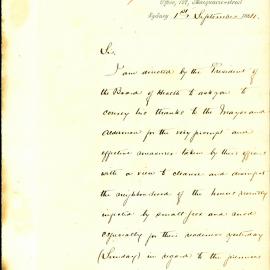 Office, 127, Macquarie-street
Sydney 1st September 1881.
Sir,
I am directed by the President of
the Board of Health to ask you to
convey his thanks to the Mayor and
Aldermen for the very prompt and
effective measures taken by their officers
with a view to cleanse and disinfect
the neighbourhood of the houses recently
infected by small pox and more
especially for their readiness yesterday
(Sunday) in regard to the premises